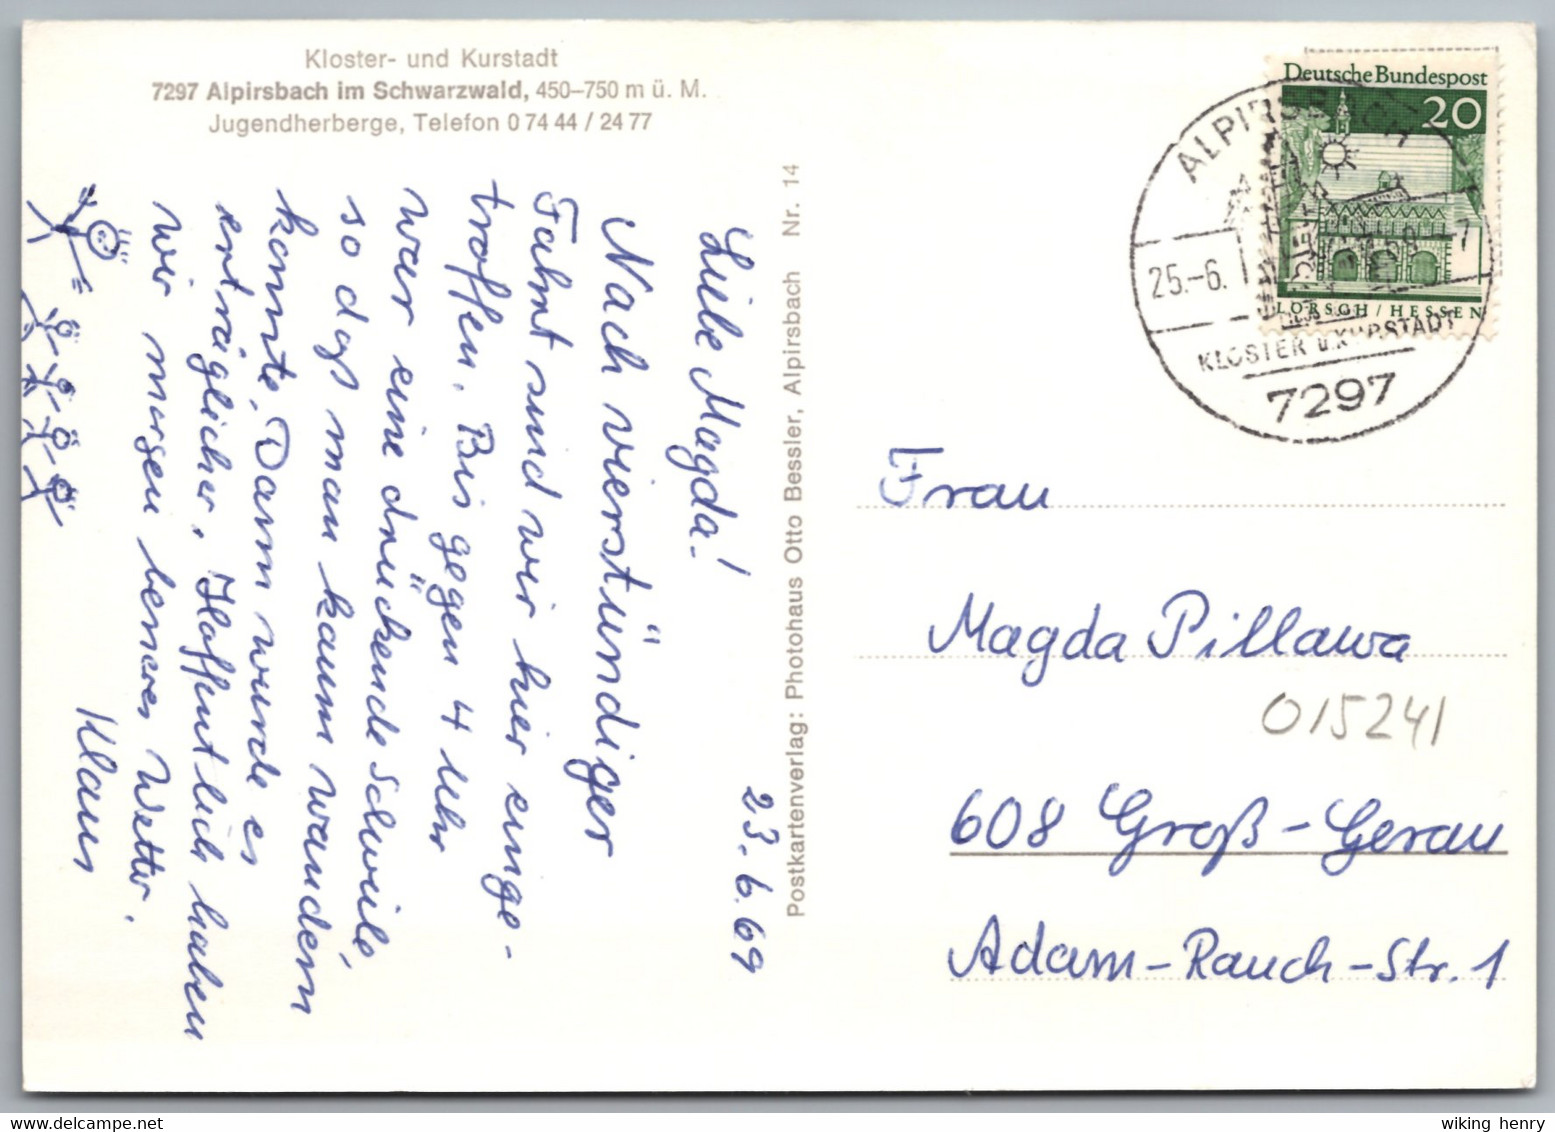 Kloster- und Kurstadt
7297 Alpirsbach im Schwarzwald, 450–750 m ü. M.
Jugendherberge, Telefon 0 74 44 / 24 77
23.6.69
Liebe Magda!
Nach vierstündiger
Fahrt sind wir hier einge-
troffen. Bis gegen 4 Uhr
war eine drückende Schwüle,
so dass man kaum wandern
konnte. Dann wurde es
erträglicher. Hoffentlich haben
wir morgen besseres Wetter.
Klaus
Postkartenverlag: Photohaus Otto Bessler, Alpirsbach Nr. 14
Deutsche Bundespost
20
LORSCH / HESSEN
ALPIRSBACH
25.-6.
7
KLOSTER U. KURSTADT
7297
Frau
Magda Pillawa
015241
608 Groß-Gerau
Adam-Rauch-Str. 1
wiking henry